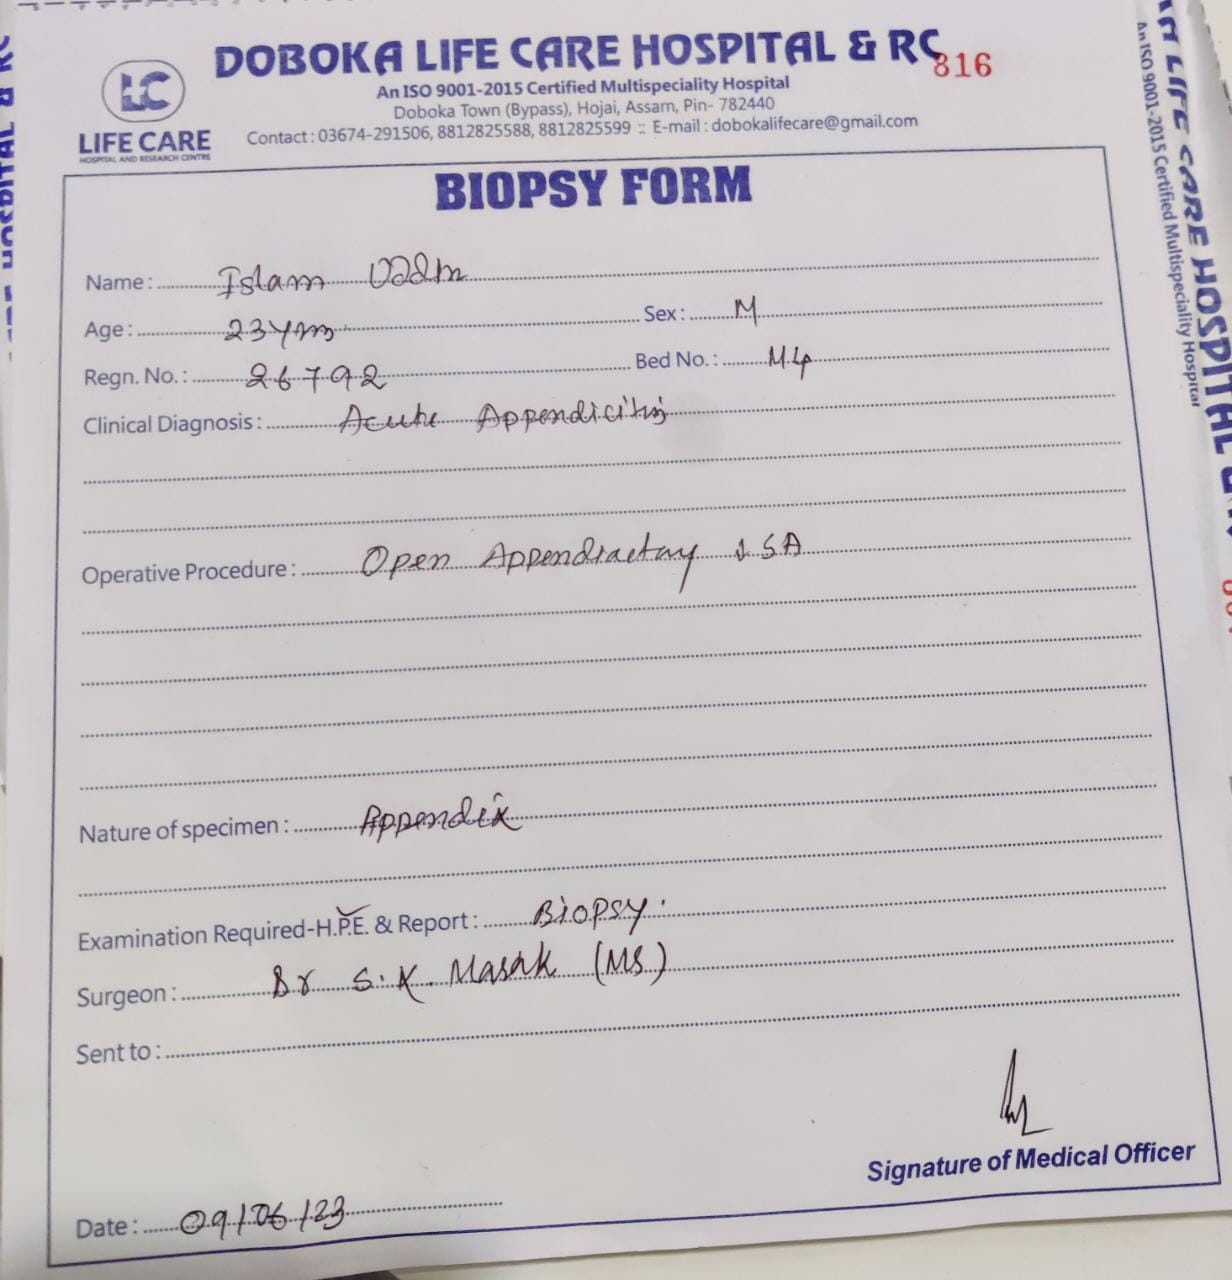 DOBOKA LIFE CARE HOSPITAL & RC
816
An ISO 9001-2015 Certified Multispeciality Hospital
Doboka Town (Bypass), Hojai, Assam, Pin- 782440
Contact : 03674-291506, 8812825588, 8812825599 :: E-mail : dobokalifecare@gmail.com
LC
LIFE CARE
HOSPITAL AND RESEARCH CENTRE
BIOPSY FORM
Name : Islam Uddin
Age : 23 Sex : M
Regn. No. : 26792 Bed No. : M4
Clinical Diagnosis : Acute Appendicitis
Operative Procedure : Open SA
Nature of specimen : Appendix
Examination Required-H.P.E. & Report : Biopsy.
Surgeon : Dr S.K. (MS)
Sent to :
Signature of Medical Officer
Date : 09/06/23
KA LIFE CARE HOSPITAL &
An ISO 9001-2015 Certified Multispeciality Hospital